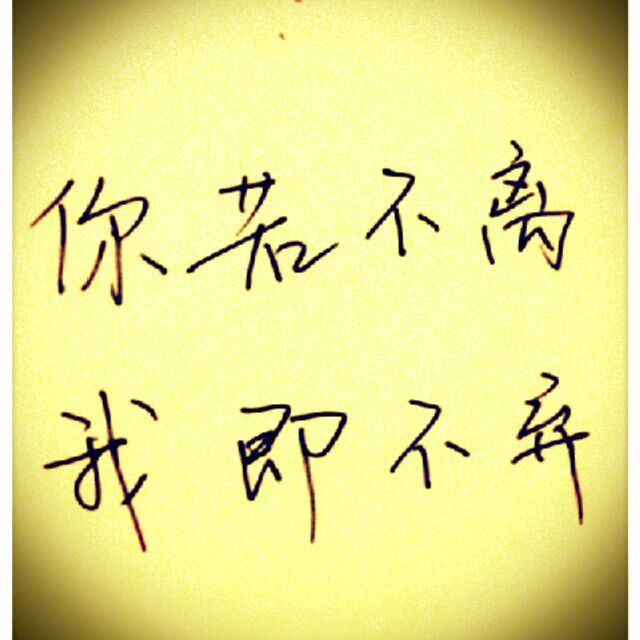 你若不离
我即不弃